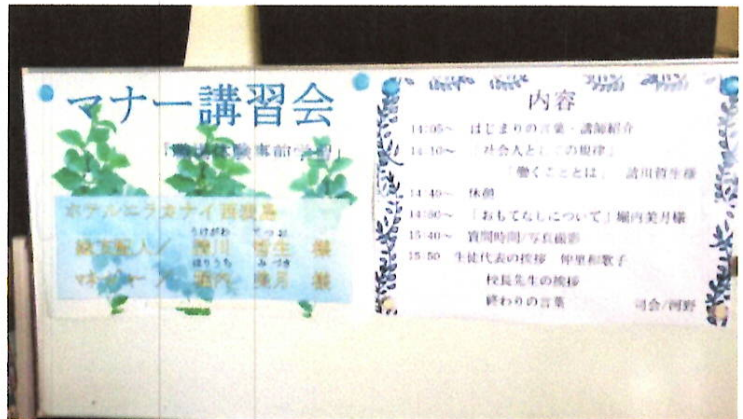 マナー講習会
「職場体験事前学習」
ホテルニラカナイ西表島
うけがわ てつお
総支配人／ 請川 哲生 様
ほりうち みづき
マネージャー／ 堀内 美月 様
内容
14:05～ はじまりの言葉・講師紹介
14:10～ 「社会人としての規律」
「働くこととは」 請川哲生様
14:40～ 休憩
14:50～ 「おもてなしについて」堀内美月様
15:40～ 質問時間/写真撮影
15:50 生徒代表の挨拶 仲里和歌子
校長先生の挨拶
終わりの言葉 司会/河野